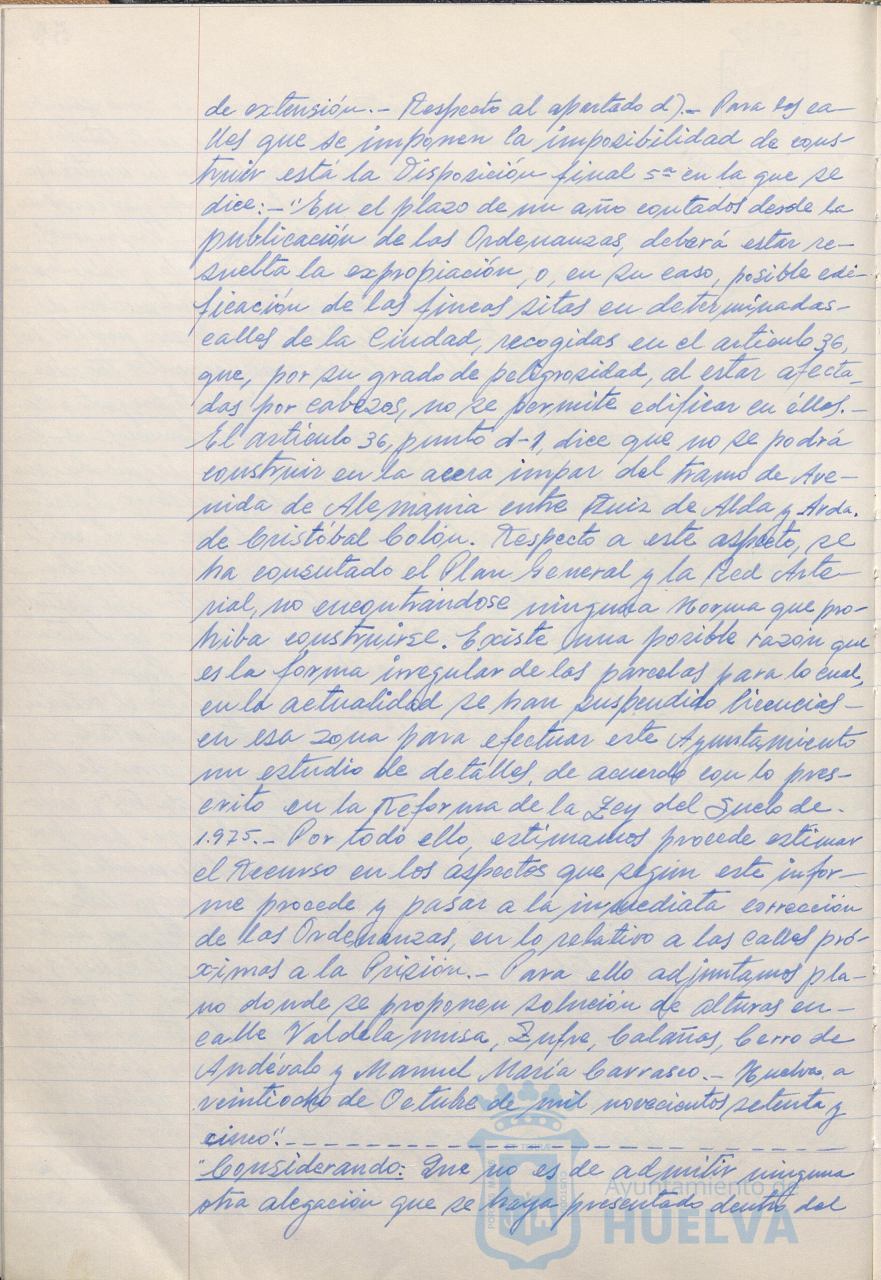 de extensión.- Respecto al apartado d).- Para las ca-
lles que se imponen la imposibilidad de cons-
truir está la Disposición final 5ª en la que se
dice:-"En el plazo de un año contados desde la
publicación de las Ordenanzas, deberá estar re-
suelta la expropiación, o, en su caso, posible edi-
ficación de las fincas sitas en determinadas-
calles de la Ciudad, recogidas en el artículo 36,
que, por su grado de peligrosidad, al estar afecta-
das por cabezos, no se permite edificar en éllas.-
El artículo 36, punto d-1, dice que no se podrá
construir en la acera impar del tramo de Ave-
nida de Alemania entre Ruiz de Alda y Avda.
de Cristóbal Colón. Respecto a este aspecto, se
ha consutado el Plan General y la Red Arte-
rial, no encontrándose ninguna Norma que pro-
hiba construirse. Existe una posible razón que
es la forma irregular de las parcelas para lo cual,
en la actualidad se han suspendido licencias-
en esa zona para efectuar este Ayuntamiento
un estudio de detalles, de acuerdo con lo pres-
crito en la Reforma de la Ley del Suelo de-
1.975.- Por todo ello, estimamos procede estimar
el Recurso en los aspectos que según este infor-
me procede y pasar a la inmediata corrección
de las Ordenanzas, en lo relativo a las calles pró-
ximas a la Prisión.- Para ello adjuntamos pla-
no donde se proponen solución de alturas en-
calle Valdelamusa, Zufre, Calañas, Cerro de
Andévalo y Manuel María Carrasco.- Huelva a
veintiocho de Octubre de mil novecientos setenta y
cinco".
"Considerando: Que no es de admitir ninguna
otra alegación que se haya presentado dentro del
Ayuntamiento de
HUELVA